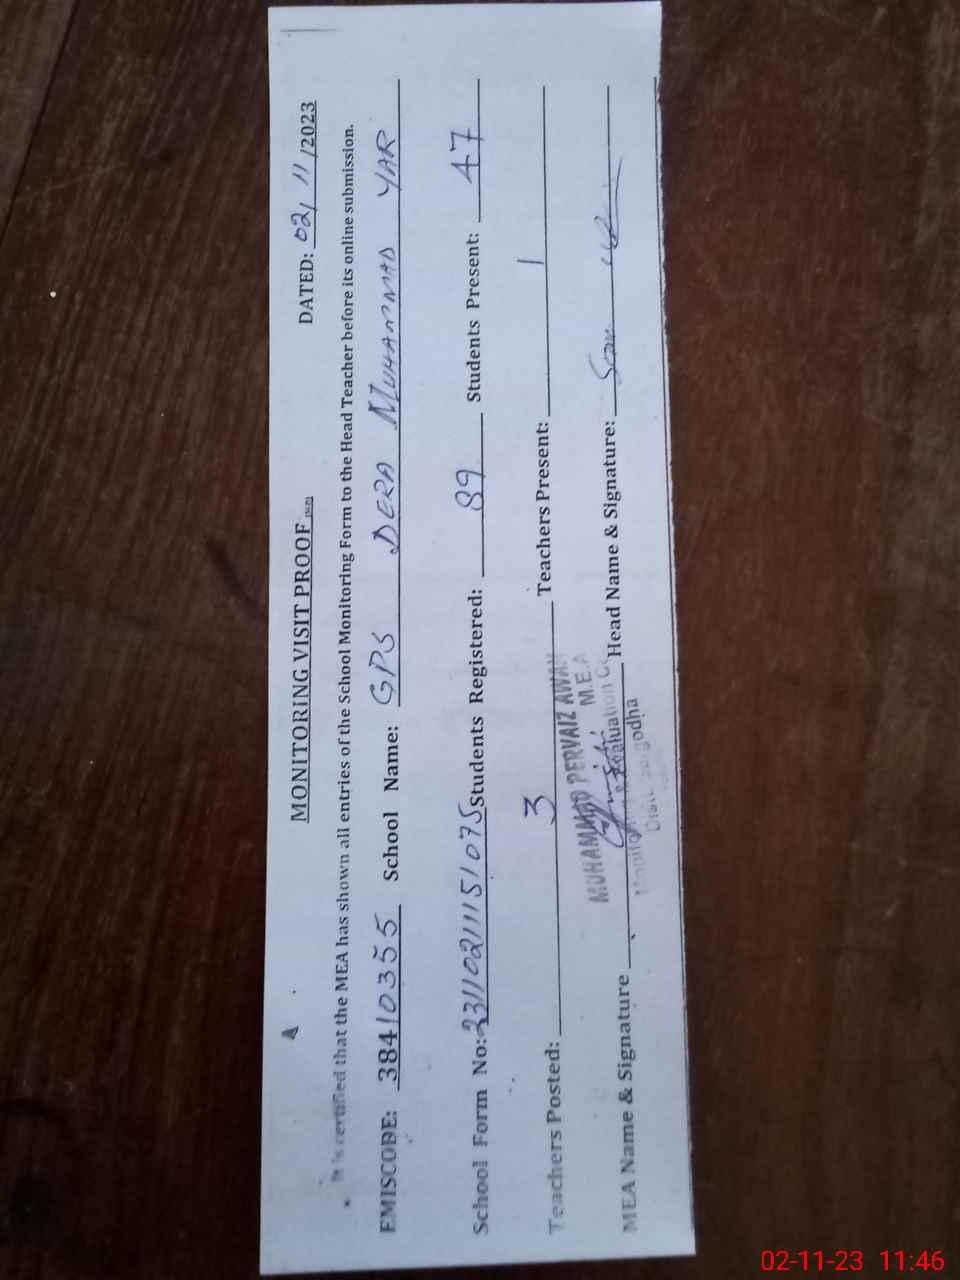 MONITORING VISIT PROOF DATED: 02/11/2023
• It is certified that the MEA has shown all entries of the School Monitoring Form to the Head Teacher before its online submission.
EMISCODE: 38410355 School Name: GPS DERA MUHAMMAD YAR
School Form No: 23110211151075 Students Registered: 89 Students Present: 47
Teachers Posted: 3 Teachers Present: 1
MUHAMMAD PERVAIZ AWAN
M.E.A
MEA Name & Signature Head Name & Signature:
02-11-23 11:46